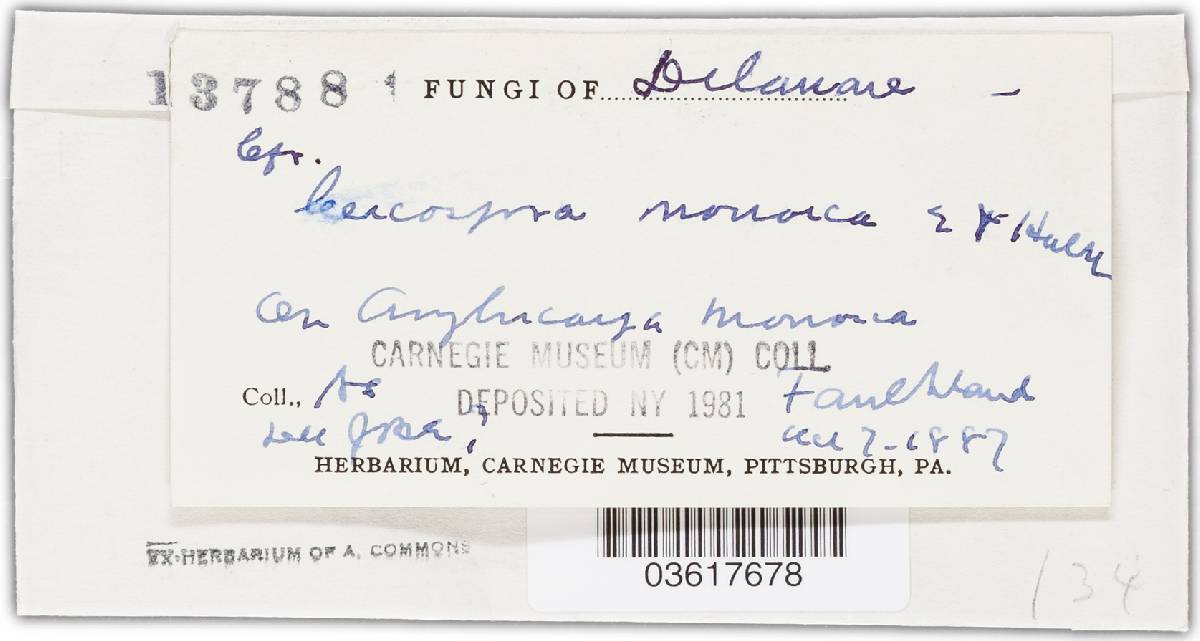 13788
FUNGI OF Delaware -
Cfr.
Cercospora monoica E & Halst
On Amphicarpa monoica
CARNEGIE MUSEUM (CM) COLL.
Coll.,
DEPOSITED NY 1981
Faulkland
7-1887
HERBARIUM, CARNEGIE MUSEUM, PITTSBURGH, PA.
EX-HERBARIUM OF A. COMMONS
03617678
134